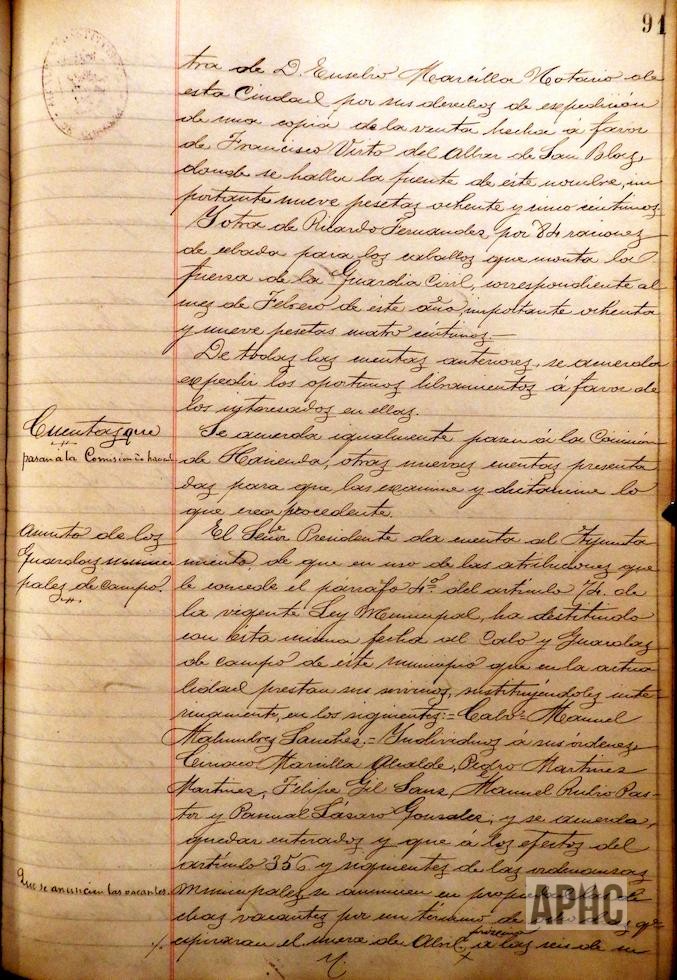 91
tra de D. Eusebio Marcilla Notario de
esta Ciudad por sus derechos de expedición
de una copia de la venta hecha á favor
de Francisco Virto del Albar de San Blas,
donde se halla la fuente de éste nombre, im
portante nueve pesetas ochenta y cinco céntimos
Y otra de Ricardo Fernandez por 84 raciones
de cebada para los caballos que monta la
fuerza de la Guardia Civil, correspondiente al
mes de Febrero de este año, importante ochenta
y nueve pesetas cuatro céntimos.=
De todas las cuentas anteriores, se acuerda
expedir los oportunos libramientos á favor de
los interesados en ellas.
Cuentas que
pasan á la Comision de hacienda
Se acuerda igualmente pasen á la Comisión
de Hacienda, otras nuevas cuentas presenta
das para que las examine y dictamine lo
que crea procedente.
Asunto de los
Guardas munici
pales de campo.
El Señor Presidente da cuenta al Ayunta
miento, de que en uso de las atribuciones que
le concede el párrafo 4º del artículo 74. de
la vigente Ley Municipal, ha destituido
con esta misma fecha al Cabo y Guardas
de campo de éste municipio que en la actua
lidad prestan sus servicios, sustituyéndoles inte-
rinamente, en los siguientes:= Cabo= Manuel
Sanchez.= Yndividuos á sus órdenes,
Ciriaco Marcilla Alcalde, Pedro Martinez
Martinez, Felipe Gil Sanz, Manuel Rubio Pas-
tor y Pascual Lásaro Gonzalez; y se acuerda,
quedar enterados y que á los efectos del
artículo 356 y siguientes de las ordenanzas
Que se anuncien las vacantes.
Municipales, se anuncien en propiedad
chas vacantes por un término de
espiraran el nueve de Abril próximo á las seis de su
APHC